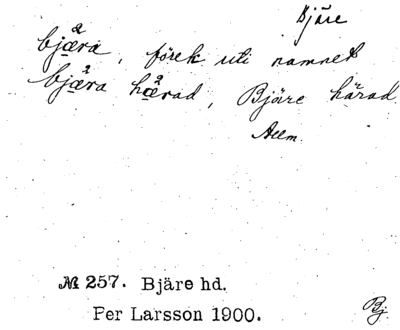 Bjäre
bjæra, förek. uti namnet
bjæra hærad, Bjäre härad.
Allm.
№ 257. Bjäre hd.
Per Larsson 1900.
Bj.